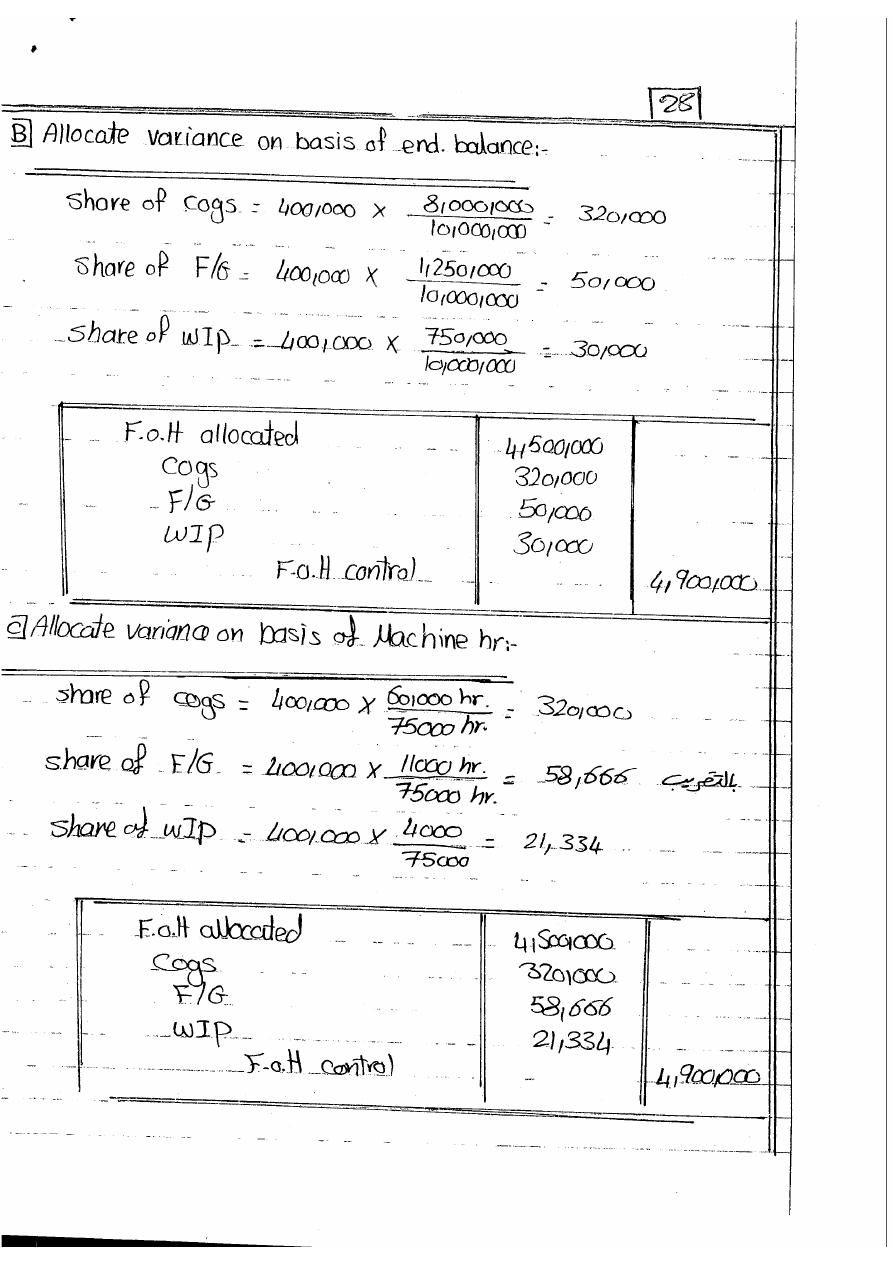 28
B Allocate variance on basis of end. balance:-
Share of Cogs = 400,000 × 8,000,000 / 10,000,000 = 320,000
Share of F/G = 400,000 × 1,250,000 / 10,000,000 = 50,000
Share of WIP = 400,000 × 750,000 / 10,000,000 = 30,000
F.o.H allocated 4,500,000
Cogs 320,000
F/G 50,000
WIP 30,000
F.o.H control 4,900,000
C Allocate variance on basis of Machine hr:-
share of cogs = 400,000 × 60,000 hr. / 75000 hr. = 320,000
share of F/G = 400,000 × 11000 hr. / 75000 hr. = 58,666 بالتقريب
Share of WIP = 400,000 × 4000 / 75000 = 21,334
F.o.H allocated 4,500,000
Cogs 320,000
F/G 58,666
WIP 21,334
F.o.H control 4,900,000